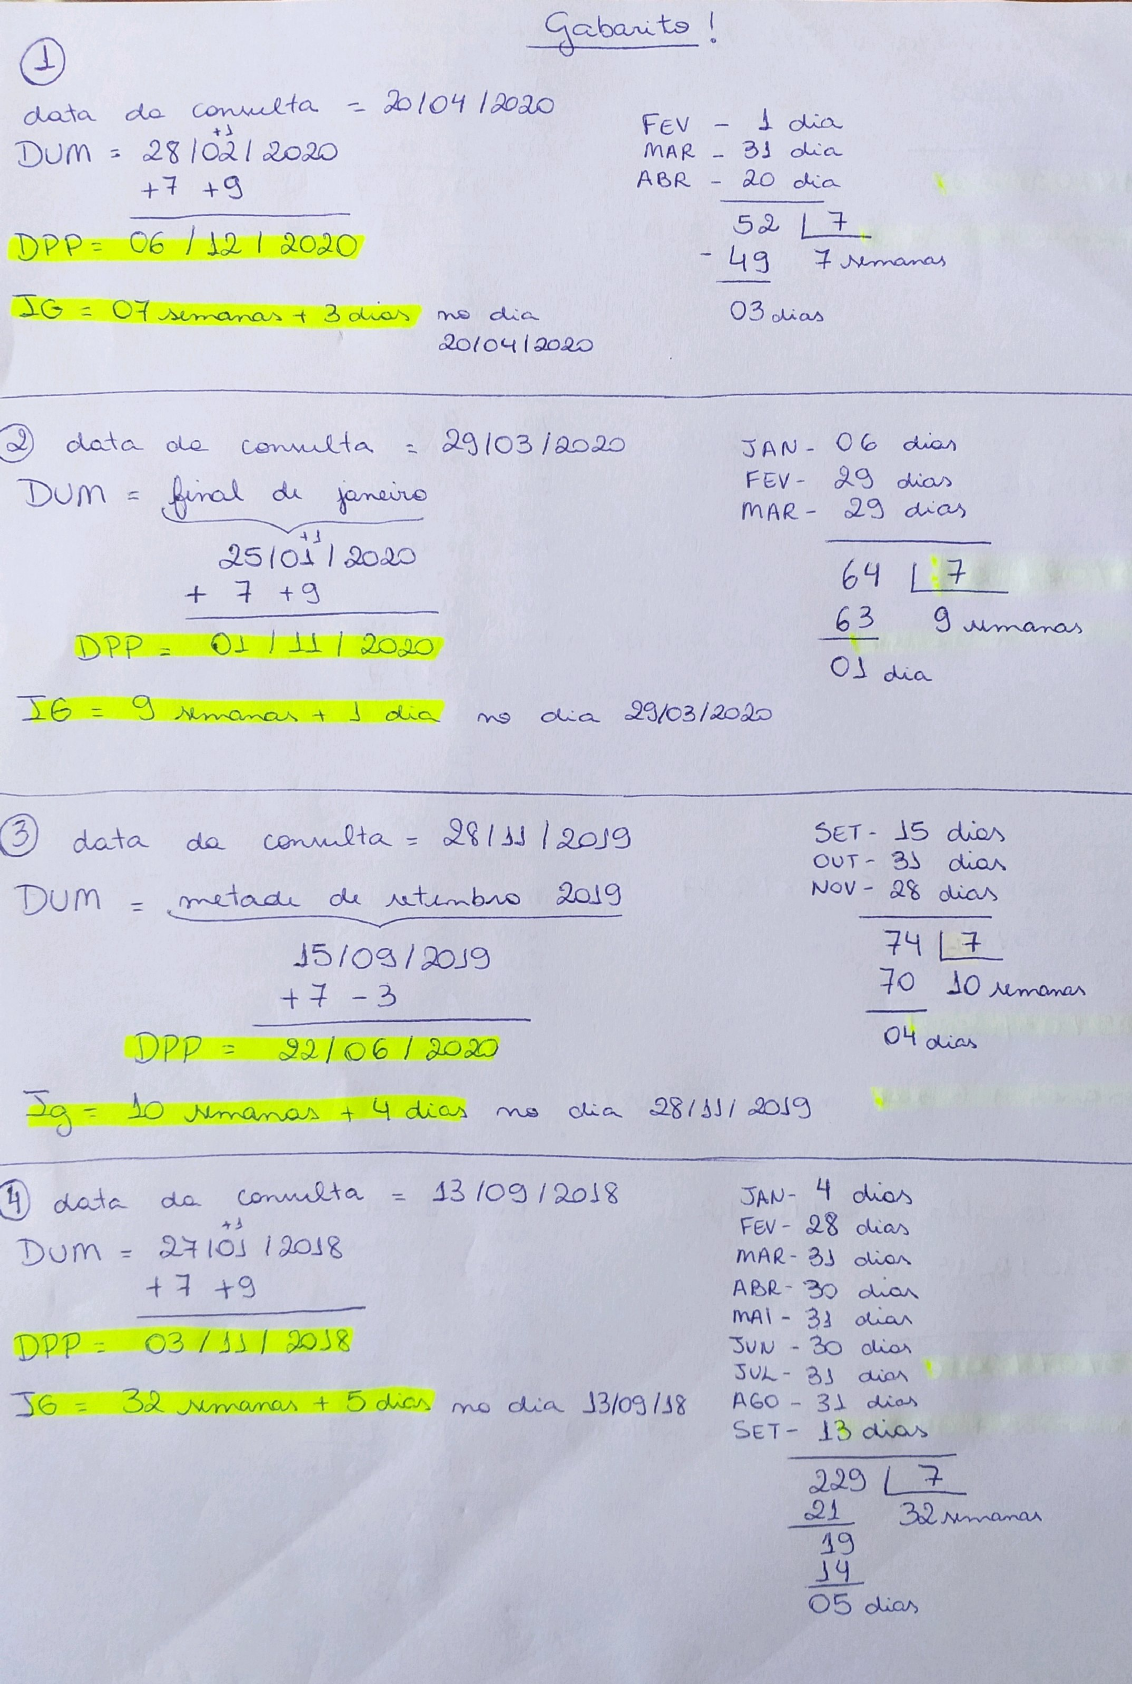 Gabarito!
1
data da consulta = 20/04/2020
+1
DUM = 28/02/2020
+7 +9
DPP = 06/12/2020
IG = 07 semanas + 3 dias no dia
20/04/2020
FEV - 1 dia
MAR - 31 dia
ABR - 20 dia
52 7
- 49 7 semanas
03 dias
2 data da consulta = 29/03/2020
DUM = final de janeiro
+1
25/01/2020
+ 7 +9
DPP = 01/11/2020
IG = 9 semanas + 1 dia no dia 29/03/2020
JAN- 06 dias
FEV- 29 dias
MAR- 29 dias
64 7
63 9 semanas
01 dia
3 data da consulta = 28/11/2019
DUM = metade de setembro 2019
15/09/2019
+7 -3
DPP = 22/06/2020
Ig = 10 semanas + 4 dias no dia 28/11/2019
SET- 15 dias
OUT- 31 dias
NOV- 28 dias
74 7
70 10 semanas
04 dias
4 data da consulta = 13/09/2018
+1
DUM = 27/01/2018
+7 +9
DPP = 03/11/2018
IG = 32 semanas + 5 dias no dia 13/09/18
JAN- 4 dias
FEV- 28 dias
MAR- 31 dias
ABR- 30 dias
MAI - 31 dias
JUN - 30 dias
JUL- 31 dias
AGO - 31 dias
SET- 13 dias
229 7
21 32 semanas
19
14
05 dias